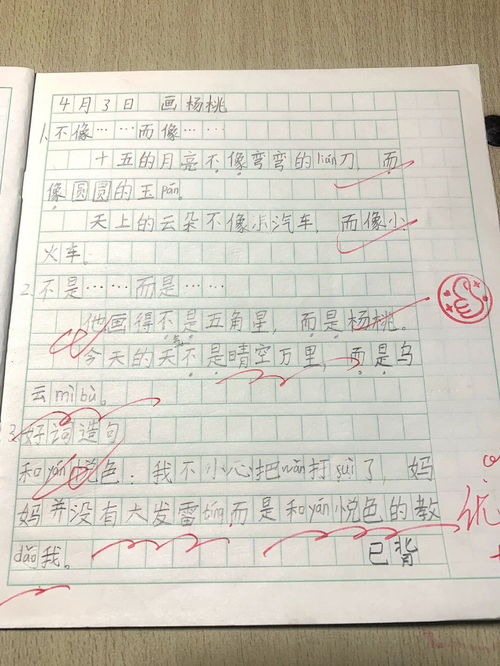 4月3日 画杨桃
1.不像……而像……
十五的月亮不像弯弯的lián刀,而
像圆圆的玉pán。
天上的云朵不像小汽车,而像小
火车。
2.不是……而是……
他画得不是五角星,而是杨桃。
今天的天气不是晴空万里,而是乌
云mìbù。
3.好词造句
和yán悦色:我不小心把wǎn打suì了,妈
妈并没有大发雷tíng而是和yán悦色的教
dǎo我。 已背
优